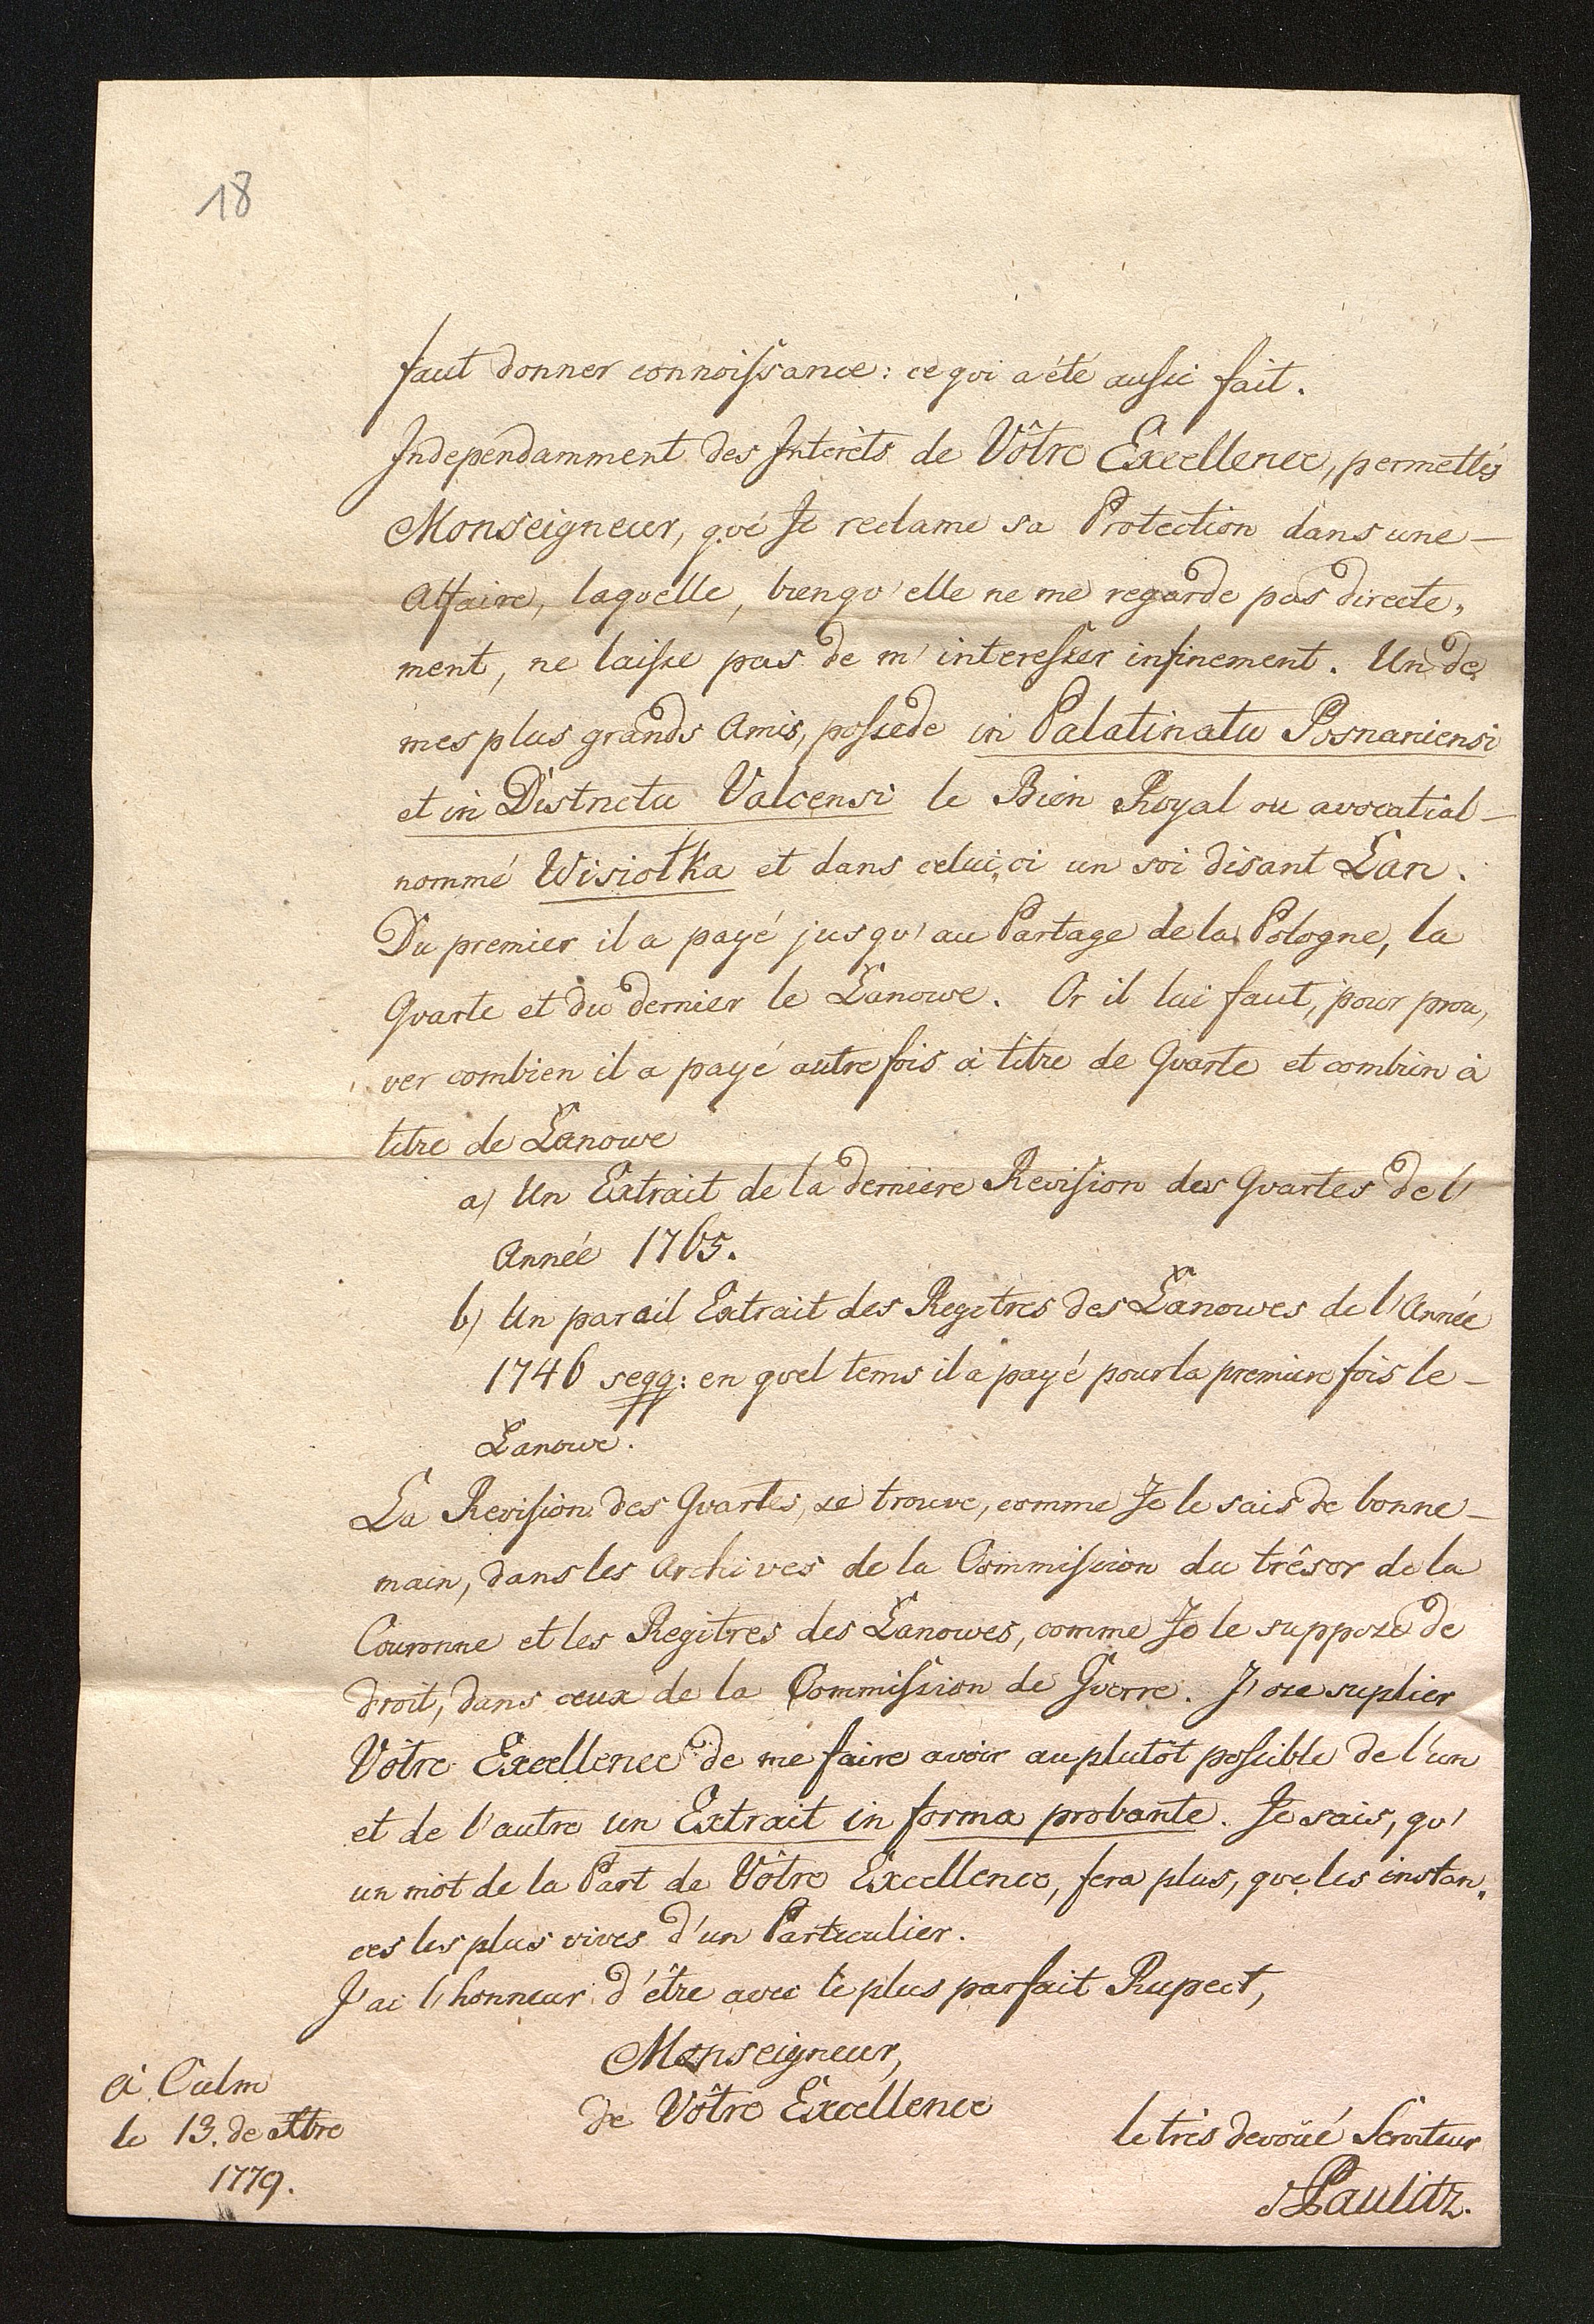 18
faut donner connoissance: ce qui a été aussi fait.
Independamment des Interêts de Vôtre Excellence, permettés
Monseigneur, que Je reclame sa Protection dans une
Affaire, laquelle, bienqu'elle ne me regarde pas directe„
ment, ne laisse pas de m'interesser infinement. Un de
mes plus grands Amis, possede in Palatinatu Posnaniensi
et in Districtu Valcensi le Bien Royal ou avocatial
nommé Wisiotka et dans celui„ci un soi disant Łan.
Du premier il a payé jusqu'au Partage de la Pologne, la
Quarte et du dernier le Łanowe. Or il lui faut, pour prou„
ver combien il a payé autrefois à titre de Quarte et combien à
titre de Łanowe
a) Un Extrait de la derniere Revision des Quartes de l'
Année 1765.
b) Un parail Extrait des Regitres des Łanowes de l'Année
1746 seqq: en quel tems il a payé pour la premiere fois le
Łanowe.
La Revision des Quartes, se trouve, comme Je le sais de bonne
main, dans les Archives de la Commission du trêsor de la
Couronne et les Regitres des Łanowes, comme Je le suppose de
droit, dans ceux de la Commission de Guerre. J'ose suplier
Vôtre Excellence de me faire avoir au plutôt possible de l'un
et de l'autre un Extrait in forma probante. Je sais, qu'
un mot de la Part de Vôtre Excellence, fera plus, que les instan„
ces les plus vives d'un Particulier.
J'ai l'honneur d'être avec le plus parfait Rupect,
Monseigneur,
de Vôtre Excellence
à Culm
le 13. de Xbre
1779.
le très devoüé Serviteur
Paulitz.